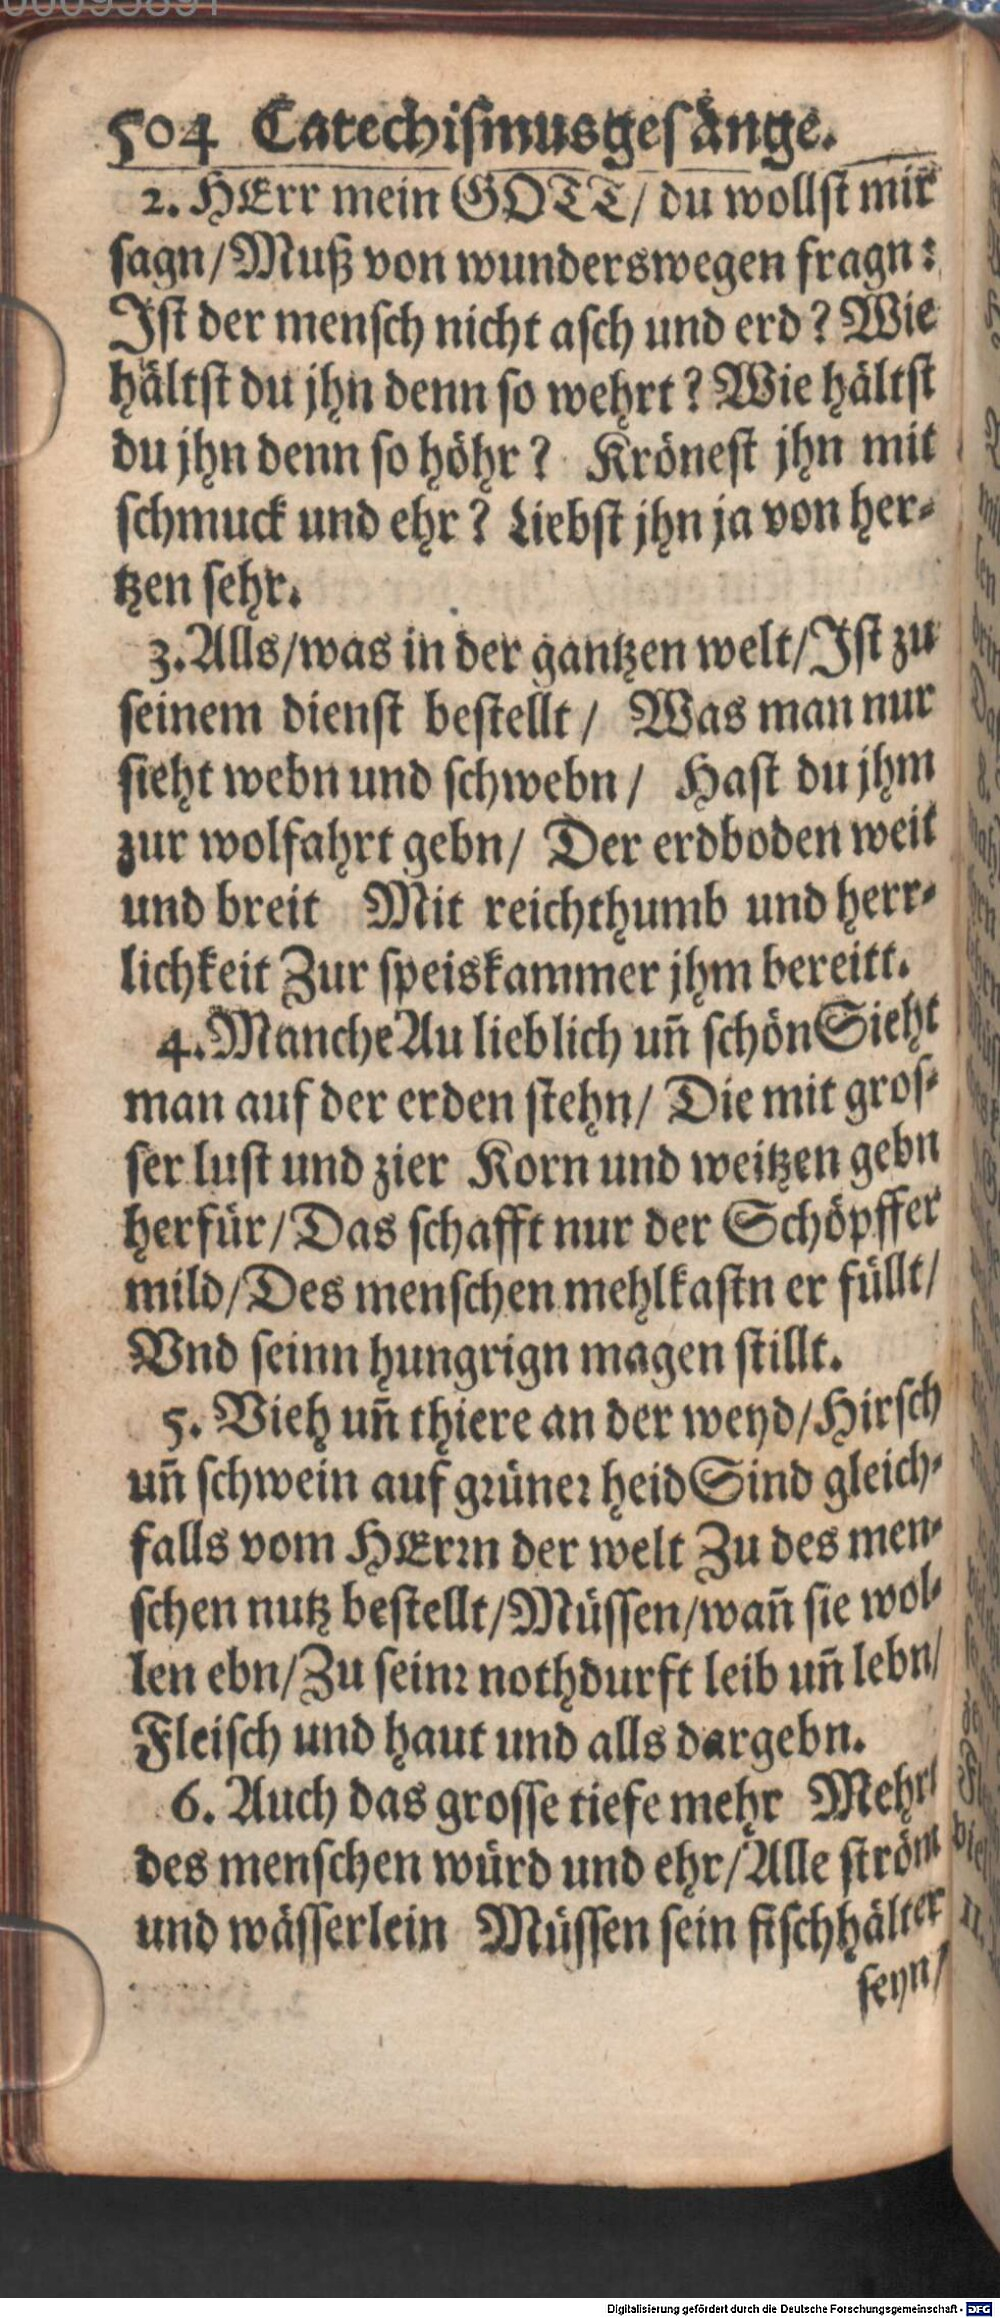 504 Catechiſmusgeſänge.
2. HErr mein GOTT/ du wollſt mir
ſagn/ Muß von wunderswegen fragn:
Iſt der menſch nicht aſch und erd? Wie
hältſt du jhn denn ſo wehrt? Wie hältſt
du jhn denn ſo höhr? Kröneſt jhn mit
ſchmuck und ehr? Liebſt jhn ja von her⸗
tzen ſehr.
3. Alls/ was in der gantzen welt/ Iſt zu
ſeinem dienſt beſtellt/ Was man nur
ſieht webn und ſchwebn/ Haſt du jhm
zur wolfahrt gebn/ Der erdboden weit
und breit Mit reichthumb und herr⸗
lichkeit Zur ſpeiskammer jhm bereitt.
4. Manche Au lieblich un̄ ſchön Sieht
man auf der erden ſtehn/ Die mit groſ⸗
ſer luſt und zier Korn und weitzen gebn
herfür/ Das ſchafft nur der Schöpffer
mild/ Des menſchen mehlkaſtn er füllt/
Vnd ſeinn hungrign magen ſtillt.
5. Vieh un̄ thiere an der weyd/ Hirſch
un̄ ſchwein auf grüner heid Sind gleich⸗
falls vom HErrn der welt Zu des men⸗
ſchen nutz beſtellt/ Müſſen/ wañ ſie wol⸗
len ebn/ Zu ſeinr nothdurft leib un̄ lebn/
Fleiſch und haut und alls dargebn.
6. Auch das groſſe tiefe mehr Mehrt
des menſchen würd und ehr/ Alle ſtröm
und wäſſerlein Müſſen ſein fiſchhälter
ſeyn/
Digitalisierung gefördert durch die Deutsche Forschungsgemeinschaft - DFG